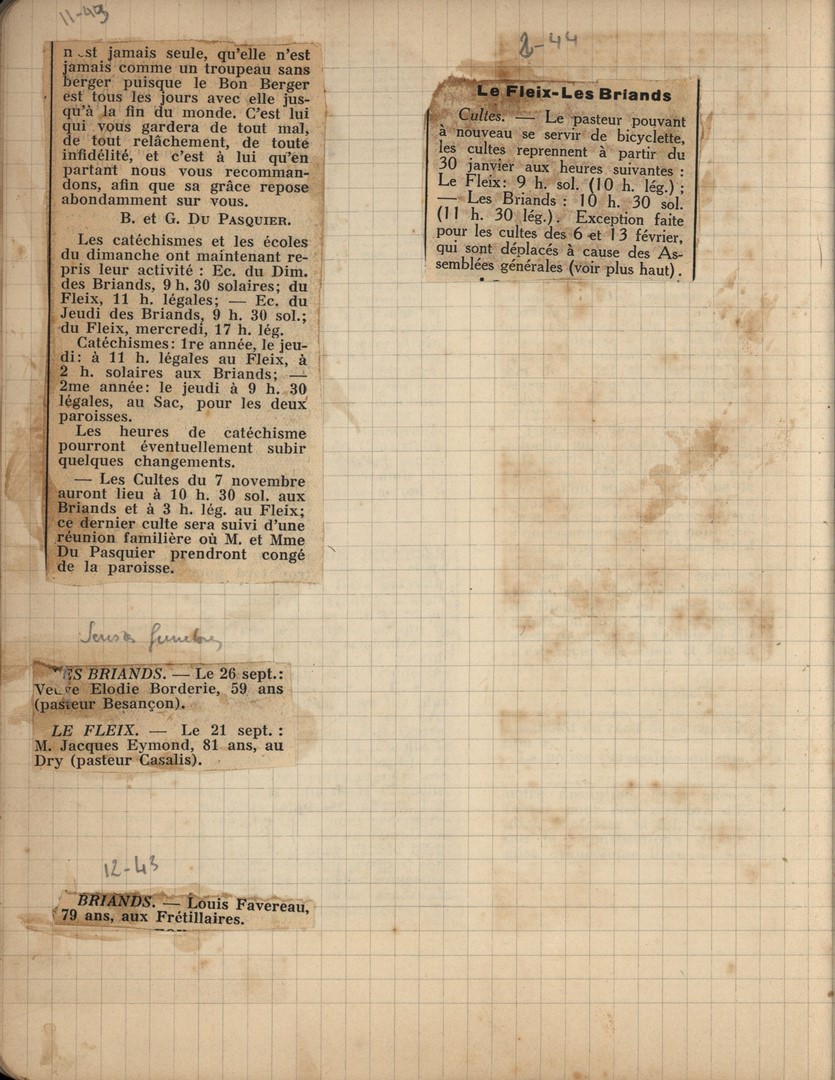 11-43
n'est jamais seule, qu'elle n'est
jamais comme un troupeau sans
berger puisque le Bon Berger
est tous les jours avec elle jus-
qu'à la fin du monde. C'est lui
qui vous gardera de tout mal,
de tout relâchement, de toute
infidélité, et c'est à lui qu'en
partant nous vous recomman-
dons, afin que sa grâce repose
abondamment sur vous.
B. et G. DU PASQUIER.
Les catéchismes et les écoles
du dimanche ont maintenant re-
pris leur activité : Ec. du Dim.
des Briands, 9 h. 30 solaires; du
Fleix, 11 h. légales; — Ec. du
Jeudi des Briands, 9 h. 30 sol.;
du Fleix, mercredi, 17 h. lég.
Catéchismes: 1re année, le jeu-
di: à 11 h. légales au Fleix, à
2 h. solaires aux Briands; —
2me année: le jeudi à 9 h. 30
légales, au Sac, pour les deux
paroisses.
Les heures de catéchisme
pourront éventuellement subir
quelques changements.
— Les Cultes du 7 novembre
auront lieu à 10 h. 30 sol. aux
Briands et à 3 h. lég. au Fleix;
ce dernier culte sera suivi d'une
réunion familière où M. et Mme
Du Pasquier prendront congé
de la paroisse.
funebres
BRIANDS. — Le 26 sept.:
Veuve Elodie Borderie, 59 ans
(pasteur Besançon).
LE FLEIX. — Le 21 sept. :
M. Jacques Eymond, 81 ans, au
Dry (pasteur Casalis).
12-43
BRIANDS. — Louis Favereau,
79 ans, aux Frétillaires.
2-44
Le Fleix-Les Briands
Cultes. — Le pasteur pouvant
à nouveau se servir de bicyclette,
les cultes reprennent à partir du
30 janvier aux heures suivantes :
Le Fleix: 9 h. sol. (10 h. lég.) ;
— Les Briands : 10 h. 30 sol.
(11 h. 30 lég.). Exception faite
pour les cultes des 6 et 13 février,
qui sont déplacés à cause des As-
semblées générales (voir plus haut).